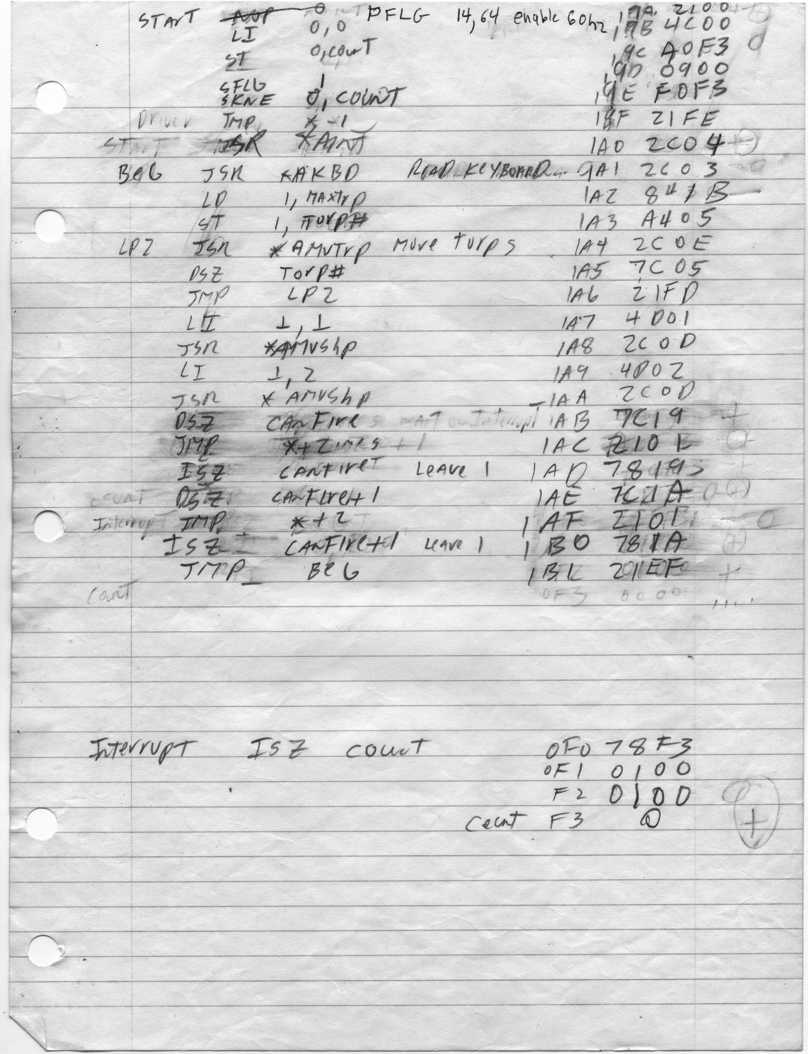 START 0 PFLG 14,64 enable 60hz 19A 2100
LI 0,0 19B 4C00
ST 0,count 19C A0F3
SFLG 1 19D 0900
SKNE 0,COUNT 19E F0F3
Driver JMP *-1 19F 21FE
START JSR *AINT 1A0 2C04
BEG JSR *AKBD READ KEYBOARD 1A1 2C03
LD 1, MAXTrp 1A2 841B
ST 1, TOrp# 1A3 A405
LP2 JSR *AMVTrp Move turps 1A4 2C0E
DSZ Torp# 1A5 7C05
JMP LP2 1A6 21FD
LI 1,1 1A7 4D01
JSR *AMVShp 1A8 2C0D
LI 1,2 1A9 4D02
JSR *AMVShp 1AA 2C0D
DSZ CANFire 1AB 7C19
JMP *+2 1AC 2101
ISZ CANFire Leave 1 1AD 7819
count DSZ CANFire+1 1AE 7C1A
Interrupt JMP *+2 1AF 2101
ISZ CANFire+1 Leave 1 1B0 781A
JMP BEG 1B1 21EF
Count 0F3 0000
Interrupt ISZ count 0F0 78F3
0F1 0100
F2 0100
Count F3 0
+